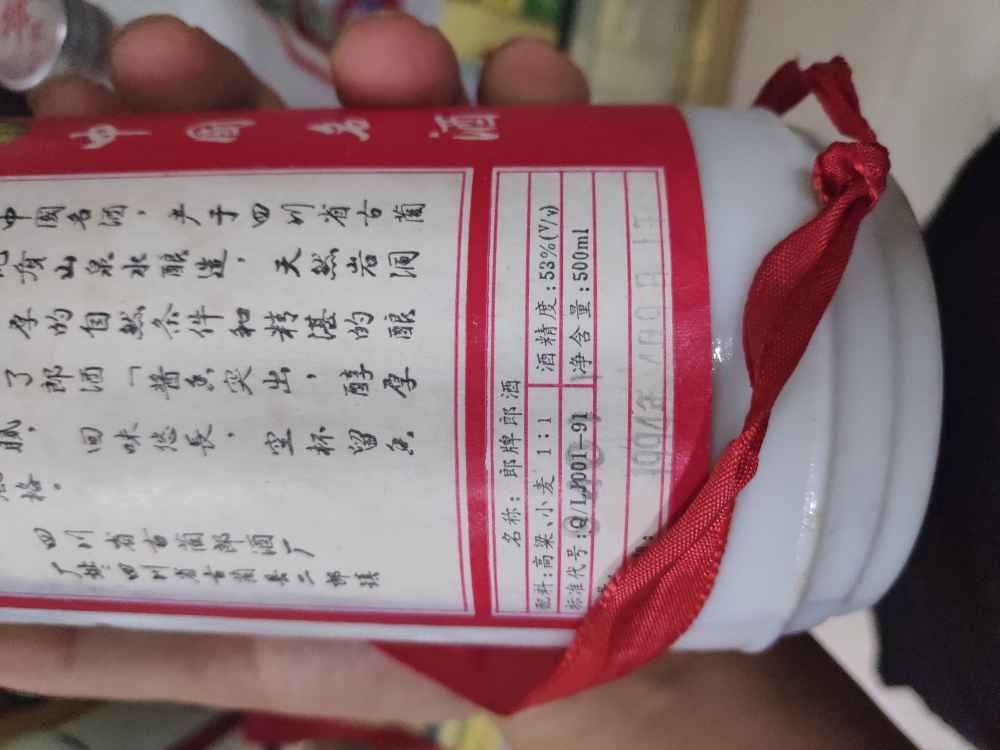 中国名酒
中國名酒，产于四川省古蔺
山泉水酿造，天然岩洞
厚的自然条件和精湛的酿
了郎酒「醬香突出，醇厚
回味悠長，空杯留香
格。
四川省古蔺郎酒厂
厂址四川省古蔺县二郎镇
名称：郎牌郎酒
配料：高粱、小麦 1:1
酒精度：53%(V/v)
标准代号：Q/LJ001-91
净含量：500ml